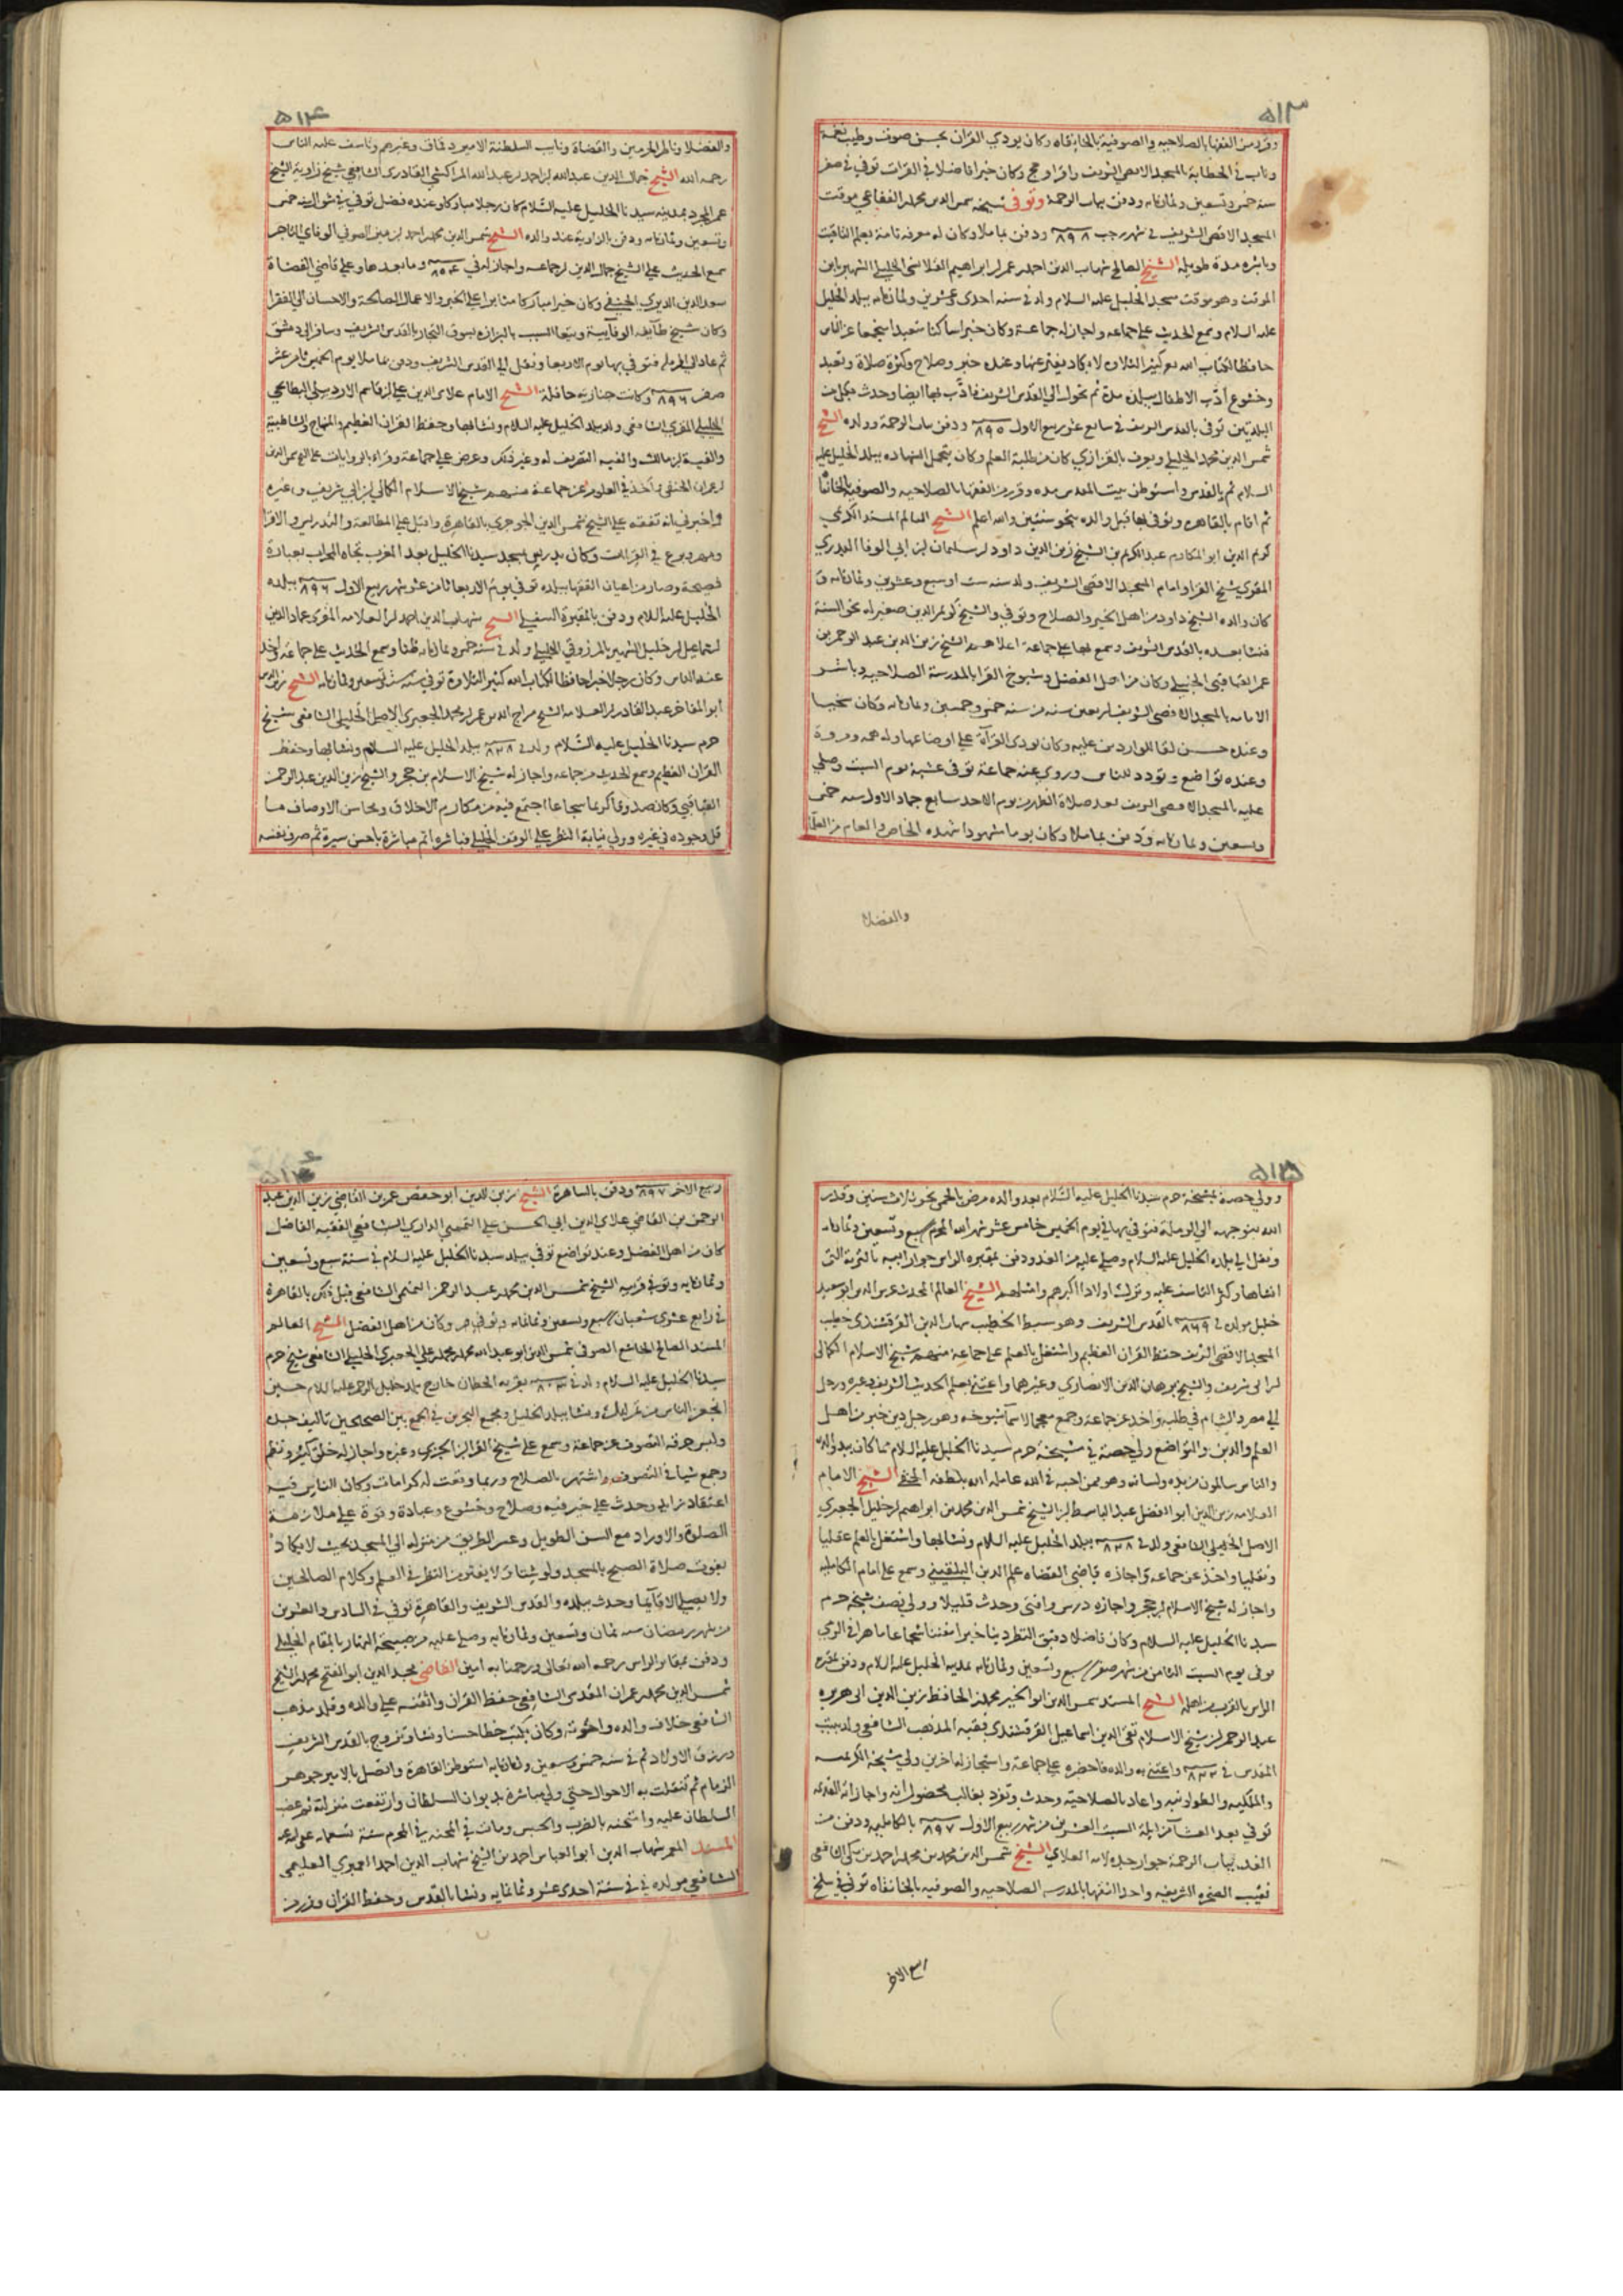 ٥١٣
وقرر من الفقها بالصلاحيه والصوفية بالخانقاه وكان يودي القران بحسن صوت وطيب نغمة
وناب في الخطابة بالمسجد الاقصى الشريف واقرا وحج وكان خيرا فاضلا في القرات توفي في صفر
سنة خمس وتسعين وثمانمايه ودفن بباب الرحمة وتوفي شيخه شمس الدين محمد الفقاعي موقت
المسجد الاقصى الشريف في شهر رجب ٨٩٨ ودفن بماملا وكان له معرفه تامة بعلم الميقات
وباشره مدة طويله الشيخ الصالح شهاب الدين احمد بن عمر بن ابراهيم الخليلي الشهير بابن
الموقت وهو موقت مسجد الخليل عليه السلام ولد في سنه احدى وعشرين وثمانمايه ببلد الخليل
عليه السلام وسمع الحديث على جماعه واجاز له جماعة وكان خيرا ساكنا متعبدا منجمعا عن الناس
حافظا لكتاب الله مع كثير التلاوة لا يكاد يفتر عنها وعنده خير وصلاح وكثرة صلاة وتعبد
وخشوع أدّب الاطفال ببلده مدة ثم تحول الى القدس الشريف فأدّب بها ايضا وحدث بكل من
البلدتين توفى بالقدس الشريف في سابع عشر ربيع الاول ٨٩٥ ودفن بباب الرحمة وولده الشيخ
شمس الدين محمد الخليلي ويعرف بالقزازي كان من طلبة العلم وكان يتحمل الشهاده ببلد الخليل عليه
السلام ثم بالقدس واستوطن بيت المقدس مده وقرر من الفقها بالصلاحيه والصوفيه بالخانقاه
ثم اقام بالقاهره وتوفى بها قبل والده بنحو سنتين والله اعلم الشيخ العالم المسند المقري
كريم الدين ابو المكارم عبد الكريم بن الشيخ زين الدين داود بن سليمان بن ابي الوفا البدري
المقري شيخ القرا وامام المسجد الاقصى الشريف ولد سنه ست او سبع وعشرين وثمانمايه و
كان والده الشيخ داود من اهل الخير والصلاح وتوفي والشيخ كريم الدين صغير له نحو السنة
فنشا بعده بالقدس الشريف وسمع بها على جماعة اعلاهم الشيخ زين الدين عبد الرحمن بن
عمر القبابي الحنبلي وكان من اهل الفضل وشيوخ القرا بالمدرسة الصلاحيه وباشر
الامامه بالمسجد الاقصى الشريف اربعين سنه من سنه خمس وخمسين وثمانمايه وكان سخيا
وعنده حسن لقا للواردين عليه وكان يودى القرآة على اوضاعها وله همه ومروة
وعنده تواضع وتودد للناس وروي عنه جماعة توفى عشية يوم السبت وصلي
عليه بالمسجد الاقصى الشريف بعد صلاة الظهر من يوم الاحد سابع جماد الاول سنه خمس
وتسعين وثمانمايه ودفن بماملا وكان يوما مشهودا شهده الخاص والعام من العلما
والفضلا
٥١٤
والفضلا وناظر الحرمين والقضاة ونايب السلطنة الامير دقماق وغيرهم وتاسف عليه الناس
رحمه الله الشيخ جمال الدين عبد الله بن احمد بن عبد الله المراكشي القادري الشافعي شيخ زاوية الشيخ
عمر المجرد بمدينه سيدنا الخليل عليه السّلام كان رجلا مباركا وعنده فضل توفي في شوال سنه خمس
وتسعين وثمانمايه ودفن بالزاوية عند والده الشيخ شمس الدين محمد بن احمد بن الصوفي الوفاي التاجر
سمع الحديث على الشيخ جمال الدين بن جماعه واجاز له في ٨٥٤ وما بعدها وعلى قاضي القضاة
سعد الدين الديري الحنفي وكان خيرا مباركا مثابرا على الخير والاعمال الصالحة والاحسان الى الفقرا
وكان شيخ طايفة الوفآيية ويتعاطى السبب بالبزازه بسوق التجار بالقدس الشريف وسافر الى دمشق
ثم عاد الى الرمله فتوفي بها يوم الاربعا ونقل الى القدس الشريف ودفن بماملا يوم الخميس ثامن عشر
صفر ٨٩٦ وكانت جنازته حافلة الشيخ الامام علاى الدين علي بن قاسم الاردبيلي البطايحي
الخليلي المقري الشافعي ولد ببلد الخليل عليه السلام ونشا بها وحفظ القران العظيم والمنهاج والشاطبية
والفية بن مالك والفيه التصريف له وغير ذلك وعرض على جماعة وقراء بالروايات على الشيخ شمس الدين
بن عمران الحنفي واخذ في العلوم عن جماعة منهم شيخ الاسلام الكمالي بن ابي شريف وغيره
واخبرني انه تفقه على الشيخ شمس الدين الجوجري بالقاهره واقبل على المطالعة والتدريس والاقرا
ومهر وبرع في القراات وكان يدرس بمسجد سيدنا الخليل بعد المغرب تجاه المحراب بعبارة
فصيحة وصار من اعيان الفقها ببلده توفي يوم الاربعا ثامن عشر شهر ربيع الاول ٨٩٦ ببلده
الخليل عليه السلام ودفن بالمقبرة السفلى الشيخ شهاب الدين احمد بن العلامه المقري عماد الدين
اسماعيل بن خليل الشهير بالمرزوقي الخليلي ولد في سنه خمس وثمانمايه ظنا وسمع الحديث على جماعة واخذ
عنه الناس وكان رجلا خيرا حافظا لكتاب الله كثير التلاوة توفى سنه ست وتسعين وثمانمايه الشيخ زين الدين
ابو المفاخر عبد القادر بن العلامه الشيخ سراج الدين عمر بن محمد الجعبري الاصل الخليلي الشافعي شيخ
حرم سيدنا الخليل عليه السّلام ولد في ٨٣٨ ببلد الخليل عليه السلام ونشا بها وحفظ
القران العظيم وسمع الحديث من جماعه واجاز له شيخ الاسلام بن حجر والشيخ زين الدين عبد الرحمن
القبابي وكان صدوقا كريما سجاعا اجتمع فيه من مكارم الاخلاق ومحاسن الاوصاف ما
قل وجوده في غيره وولي نيابة النظر على الوقف الخليلي فباشره اتم مباشرة باحسن سيرة ثم صرف نفسه
٥١٥
وولي حصة بمشيخة حرم سيدنا الخليل عليه السّلام بعد والده مرض بالحمى نحو ثلاث سنين وقدر
الله بتوجهه الى الرملة فتوفي بها في يوم الخميس خامس عشر شهر الله المحرم سبع وتسعين وثمانمايه
ونقل الى بلده الخليل عليه السلام وصلى عليه من الغد ودفن بمقبرة الراس جوار ابيه بالتربة التى
انشاها وكثر التاسف عليه وترك اولادا اكبرهم الشيخ العالم المحدث غرس الدين ابو سعيد
خليل مولده في ٨٦٩ بالقدس الشريف وهو سبط الخطيب شهاب الدين القرقشندي خطيب
المسجد الاقصى الشريف حفظ القران العظيم واشتغل بالعلم على جماعة منهم شيخ الاسلام الكمالى
بن ابى شريف والشيخ برهان الدين الانصاري وغيرهما واعتنى بعلم الحديث الشريف وغيره ورحل
الى مصر والشام في طلبه واخذ عن جماعة وجمع معجما لاسمآ شيوخه وهو رجل دين خير من اهل
العلم والدين والتواضع ولي حصة في مشيخة حرم سيدنا الخليل عليه السلام مما كان بيد والده
والناس سالمون من يده ولسانه وهو ممن احبه في الله عامله الله بلطفه الخفي الشيخ الامام
العلامه زين الدين ابو الفضل عبد الباسط بن الشيخ شمس الدين محمد بن ابراهيم بن خليل الجعبري
الاصل الخليلي الشافعي ولد في ٨٣٨ ببلد الخليل عليه السلام ونشا بها واشتغل بالعلم عقليا
ونقليا واخذ عن جماعه واجازه قاضي القضاه علم الدين البلقيني وسمع على امام الكامليه
واجاز له شيخ الاسلام بن حجر واجازه درس وافتى وحدث قليلا وولي نصف مشيخة حرم
سيدنا الخليل عليه السلام وكان فاضلا دقيق النظر دينا خيرا متفننا شجاعا ماهرا في الرمي
توفى يوم السبت الثامن من شهر صفر سبع وتسعين وثمانمايه بمدينه الخليل عليه السلام ودفن بمقبرة
الراس بالقرب من اهله الشيخ المسند شمس الدين ابو الخير محمد بن الحافظ زين الدين ابى هريره
عبد الرحمن بن شيخ الاسلام تقي الدين اسماعيل القرقشندي فقيه المذهب الشافعي ولد ببيت
المقدس في ٨٢٣ واعتنى به والده فاحضره على جماعة واستجاز له اخرين ولي مشيخة الكريميه
والملكيه والطولونيه واعاد بالصلاحية وحدث وتفرد بغالب
توفي بعد العشآ من ليلة السبت العشرين من شهر ربيع الاول ٨٩٧ بالكامليه ودفن من
الغد بباب الرحمة جوار جده لامه العلاي الشيخ شمس الدين محمد بن محمد بن احمد بن مكى الشافعي
نقيب الصخره الشريفه واحد الفقها بالمدرسه الصلاحيه والصوفيه بالخانقاه توفي في سلخ
ربيع الاخر
٥١٦
ربيع الاخر ٨٩٧ ودفن بالساهرة الشيخ زين الدين ابو حفص عمر بن القاضي زين الدين عبد
الرحمن بن القاضي علاى الدين ابي الحسن علي التميمي الداري الشافعي الفقيه الفاضل
كان من اهل الفضل وعنده تواضع توفي ببلد سيدنا الخليل عليه السلام في سنة سبع وتسعين
وثمانمايه وتوفي قريبه الشيخ شمس الدين محمد بن عبد الرحمن التميمي الشافعي قبل ذلك بالقاهرة
في رابع عشري شعبان سبع وتسعين وثمانمايه وكان من اهل الفضل الشيخ العالم
المسند الصالح الخاشع الصوفى شمس الدين ابو عبد الله محمد بن محمد بن علي الجعبري الخليلي الشافعي شيخ حرم
سيدنا الخليل عليه السلام ولد في ٨٠٣ بقرية الحطان خارج بلد خليل الرحمن عليه السلام حين
انجفل الناس من تمرلنك ونشا ببلد الخليل ومجمع البحرين في الجمع بين الصحيحين تاليف جده
ولبس خرقة التصوف عن جماعة وسمع على شيخ القرا بن الجزري وغيره واجاز له خلق كثير ونظم
وجمع شيا في التصوف واشتهر بالصلاح وربما وقعت له كرامات وكان الناس فيه
اعتقاد زايد وحدث على خير فيه وصلاح وخشوع وعبادة وقوة على ملازمة
الصلوة والاوراد مع السن الطويل وعسر الطريق من منزله الى المسجد بحيث لا يكاد
يفوت صلاة الصبح بالمسجد ولو شتآ ولا يفتر من النظر في العلم وكلام الصالحين
ولا يصلى الا قآيما وحدث ببلده والقدس الشريف والقاهرة توفى في السادس والعشرين
من شهر رمضان سنه ثمان وتسعين وثمانمايه وصلى عليه من صبيحة النهار بالمقام الخليلي
ودفن بمقابر الراس رحمه الله تعالى ورحمنا به امين القاضي مجد الدين ابو الفتح محمد بن الشيخ
شمس الدين محمد بن عمران المقدسي الشافعي حفظ القران واتقنه على والده وقلد مذهب
الشافعي خلاف والده واخوته وكان يكتب خطا حسنا ونشا وتزوج بالقدس الشريف
ورزق الاولاد ثم في سنه خمس وسبعين وثمانمايه استوطن القاهرة واتصل بالامير جوهر
الزمام ثم تنقلت به الاحوال حتى ولي مباشرة بديوان السلطان وارتفعت منزلته ثم غضب
السلطان عليه وامتحنه بالضرب والحبس ومات في المحنه في المحرم سنة تسعمايه
المسند المعمر شهاب الدين ابو العباس احمد بن الشيخ شهاب الدين احمد العمري العليمي
الشافعي مولده في سنة احدى عشر وثمانمايه ونشا بالقدس وحفظ القران وقرر من